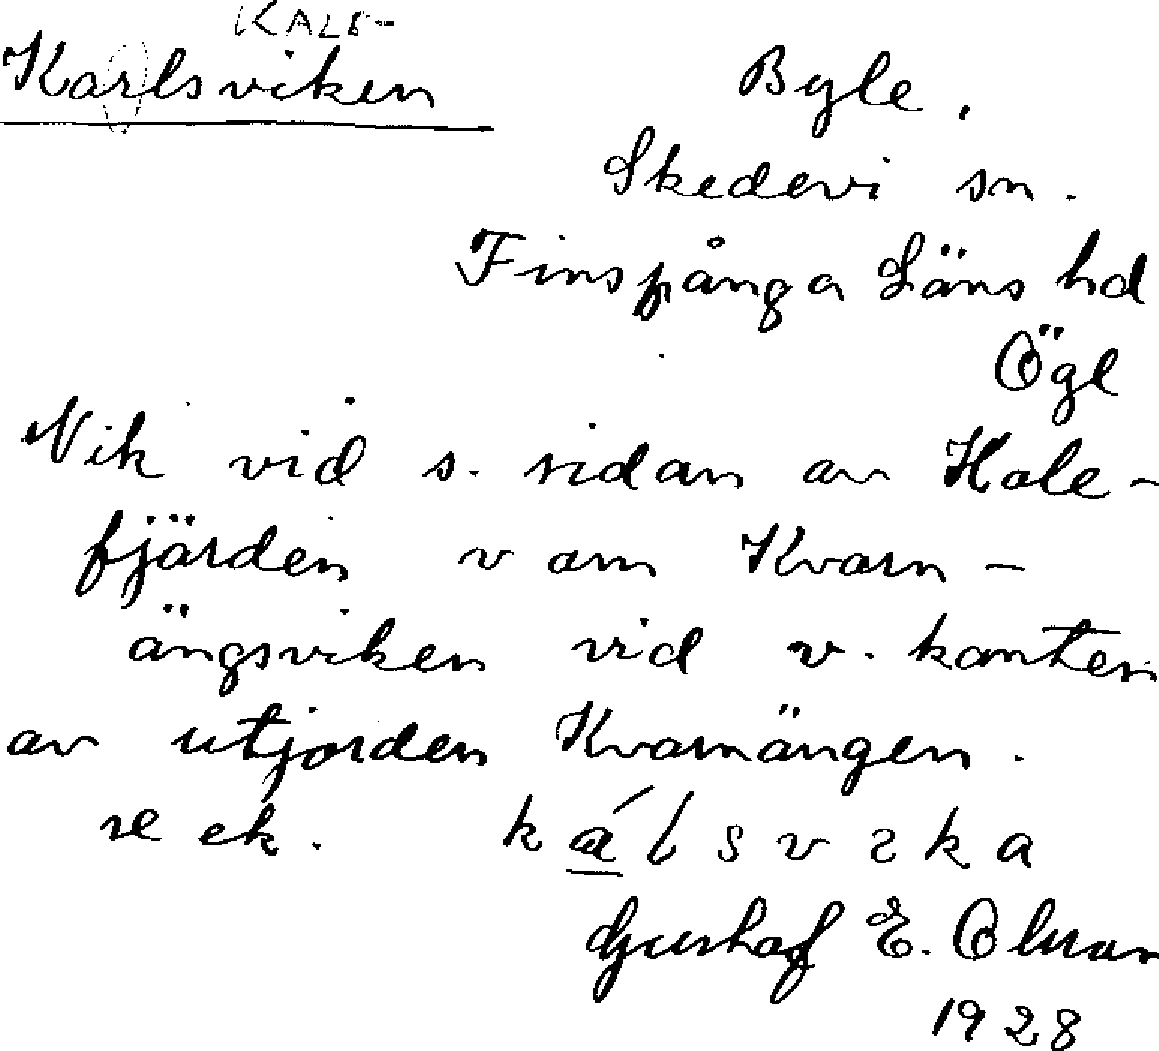 KALE-
Karlsviken
Byle.
Skedevi sn.
Finspånga Läns hd
Ögl
Vik vid s. sidan av Hale-
fjärden v om Kvarn-
ängsviken vid v. kanten
av utjorden Kvarnängen.
se ek.
Gustaf E. Olsson
1928